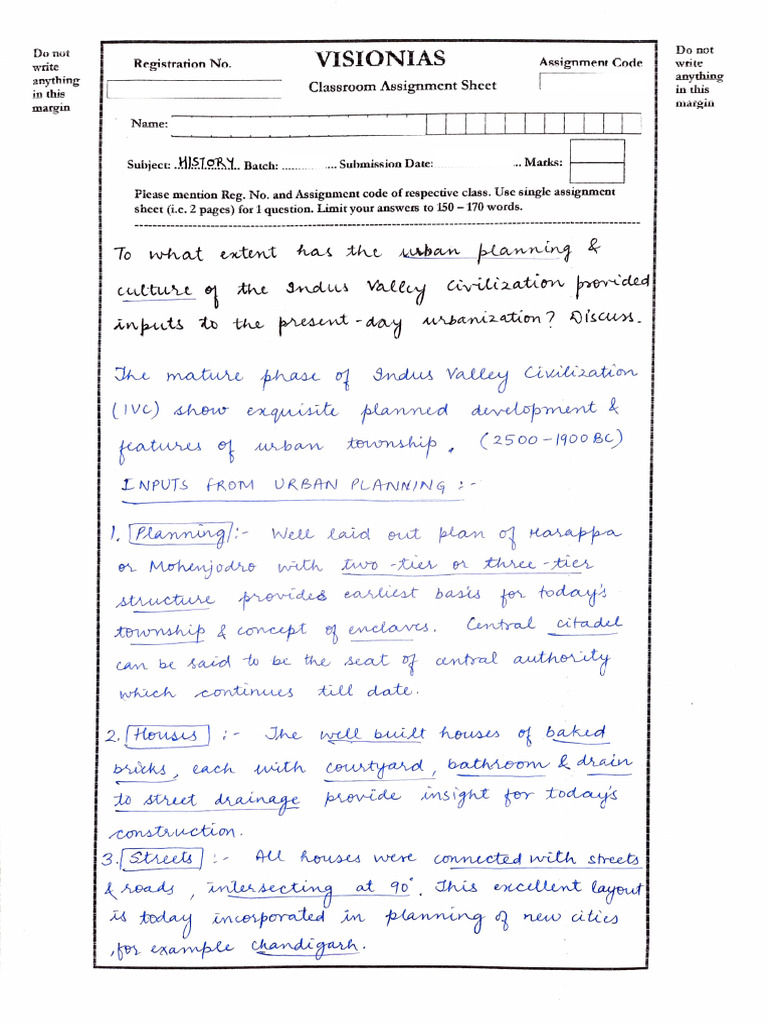 Do not
write
anything
in this
margin
VISIONIAS
Registration No.
Assignment Code
Classroom Assignment Sheet
Do not
write
anything
in this
margin
Name:
Subject: HISTORY Batch: .......... .... Submission Date: ... Marks:
Please mention Reg. No. and Assignment code of respective class. Use single assignment
sheet (i.e. 2 pages) for 1 question. Limit your answers to 150 – 170 words.
To what extent has the urban planning &
culture of the Indus Valley Civilization provided
inputs to the present-day urbanization? Discuss.
The mature phase of Indus Valley Civilization
(IVC) show exquisite planned development &
features of urban township. (2500-1900 BC)
INPUTS FROM URBAN PLANNING :-
1. Planning :- Well laid out plan of Harappa
or Mohenjodro with two-tier or three-tier
structure provides earliest basis for today's
township & concept of enclaves. Central citadel
can be said to be the seat of central authority
which continues till date.
2. Houses :- The well built houses of baked
bricks, each with courtyard, bathroom & drain
to street drainage provide insight for today's
construction.
3. Streets :- All houses were connected with streets
& roads, intersecting at 90°. This excellent layout
is today incorporated in planning of new cities
, for example Chandigarh.